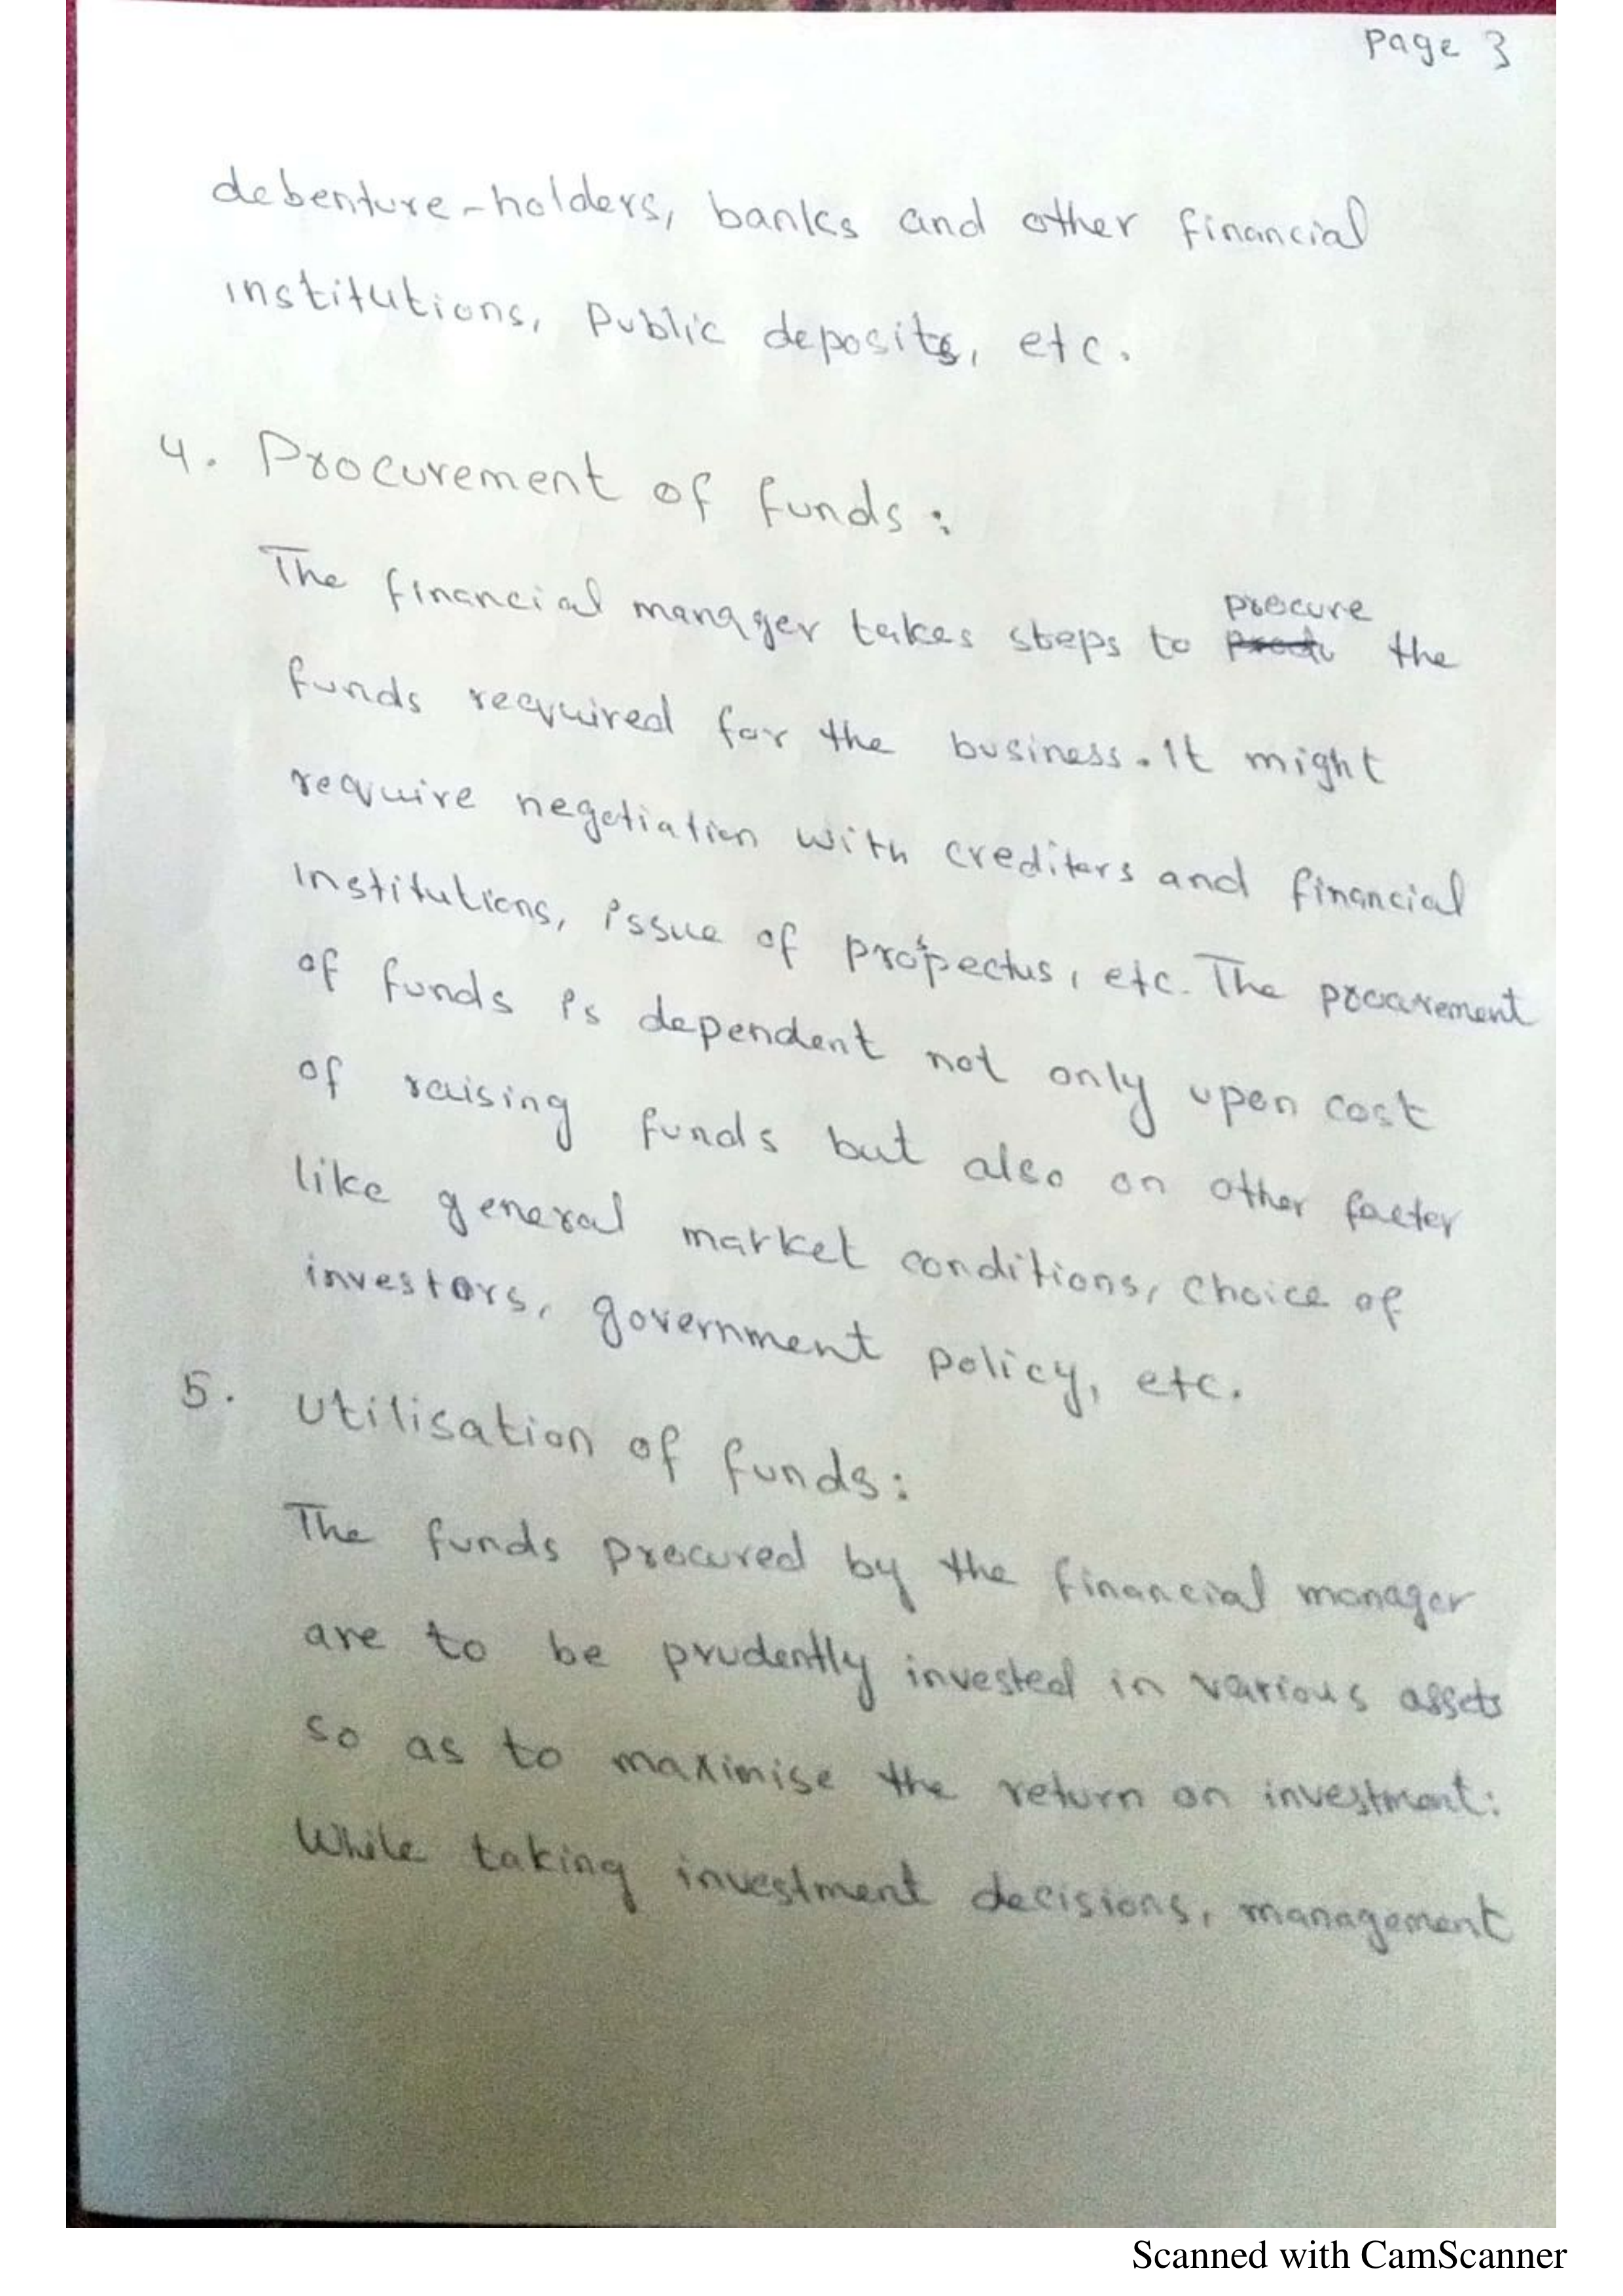 Page 3
debenture-holders, banks and other financial
institutions, Public deposits, etc.
4. Procurement of funds:
The financial manager takes steps to procure the
funds required for the business. It might
require negotiation with creditors and financial
institutions, issue of prospectus, etc. The procurement
of funds is dependent not only upon cost
of raising funds but also on other factor
like general market conditions, choice of
investors, government policy, etc.
5. Utilisation of funds:
The funds procured by the financial manager
are to be prudently invested in various assets
so as to maximise the return on investment:
While taking investment decisions, management
Scanned with CamScanner